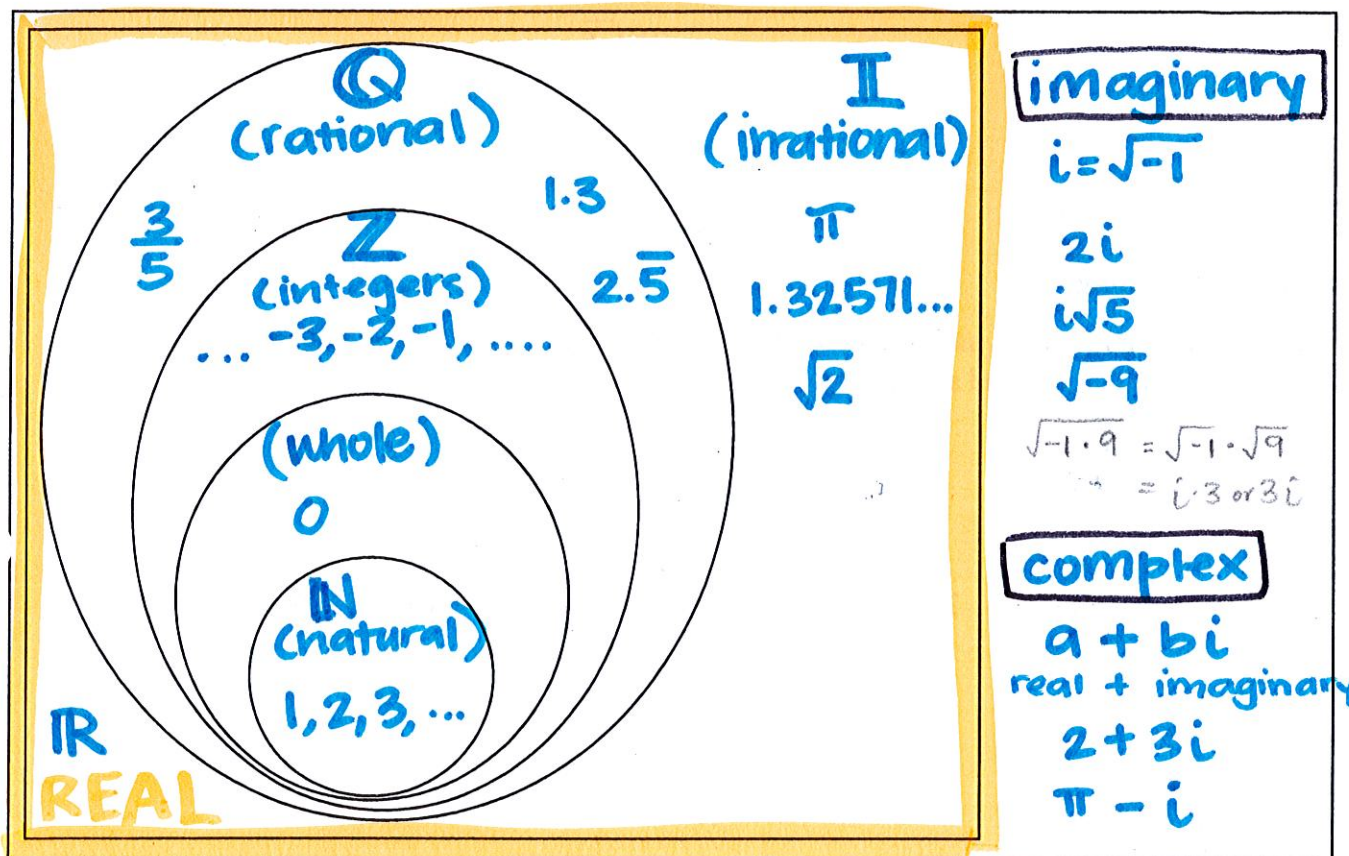 ℚ
(rational)
3/5
1.3
2.5̅
ℤ
(integers)
... -3, -2, -1, ....
(whole)
0
ℕ
(natural)
1, 2, 3, ...
ℝ
REAL
𝕀
(irrational)
π
1.32571...
√2
imaginary
i = √-1
2i
i√5
√-9
√-1·9 = √-1 · √9
= i·3 or 3i
complex
a + bi
real + imaginary
2 + 3i
π - i